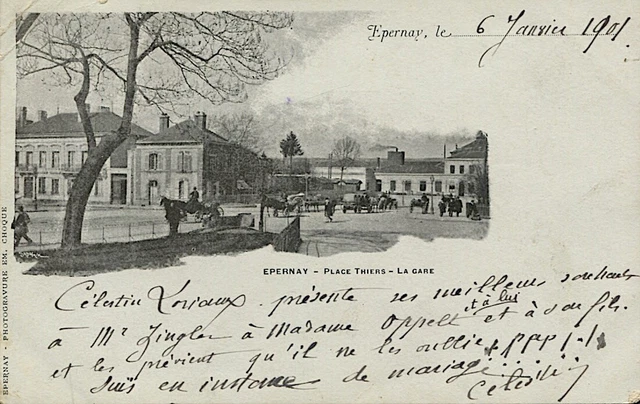 Epernay, le 6 Janvier 1901
EPERNAY - PHOTOGRAVURE EM. CHOQUE
EPERNAY - PLACE THIERS - LA GARE
Célestin présente ses meilleurs souhaits
à Mr Zingler à Madame Oppelt et à lui et à son fils.
et les prévient qu'il ne les oublie
Suis en instance de mariage